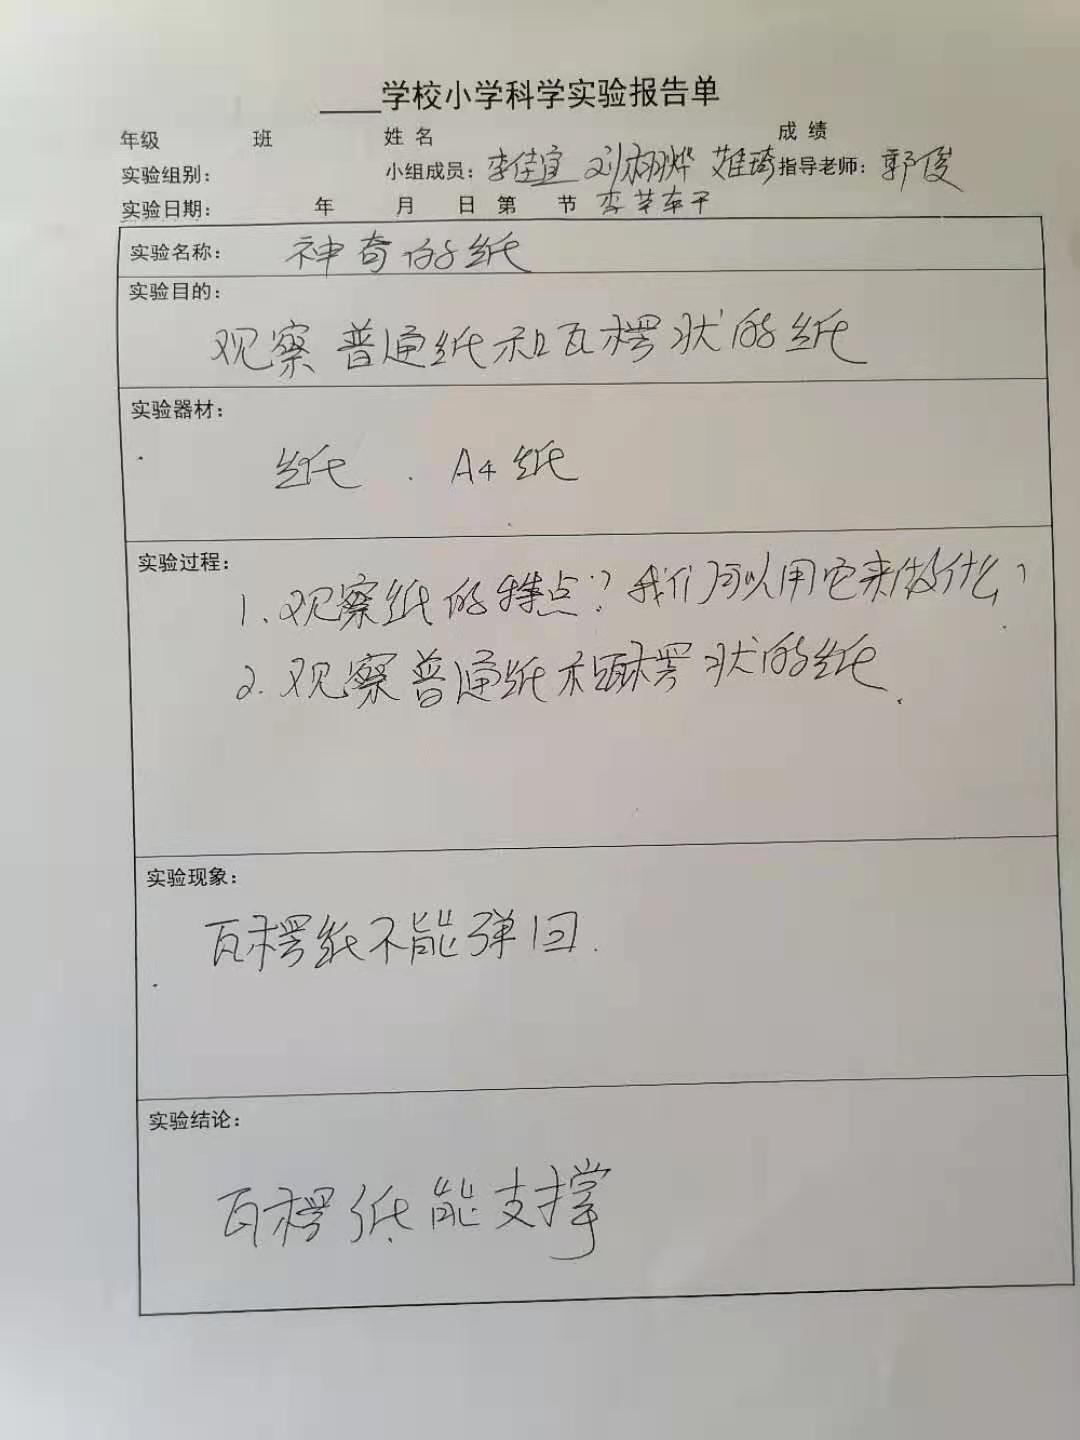 ____学校小学科学实验报告单
年级 班 姓名 成绩
实验组别： 小组成员：李佳宜 指导老师：郭俊
实验日期： 年 月 日 第 节
实验名称： 神奇的纸
实验目的：
观察普通纸和瓦楞状的纸
实验器材：
纸 . A4纸
实验过程：
1.观察纸的特点？我们可以用它来做什么？
2.观察普通纸和瓦楞状的纸.
实验现象：
瓦楞纸不能弹回.
实验结论：
瓦楞纸能支撑